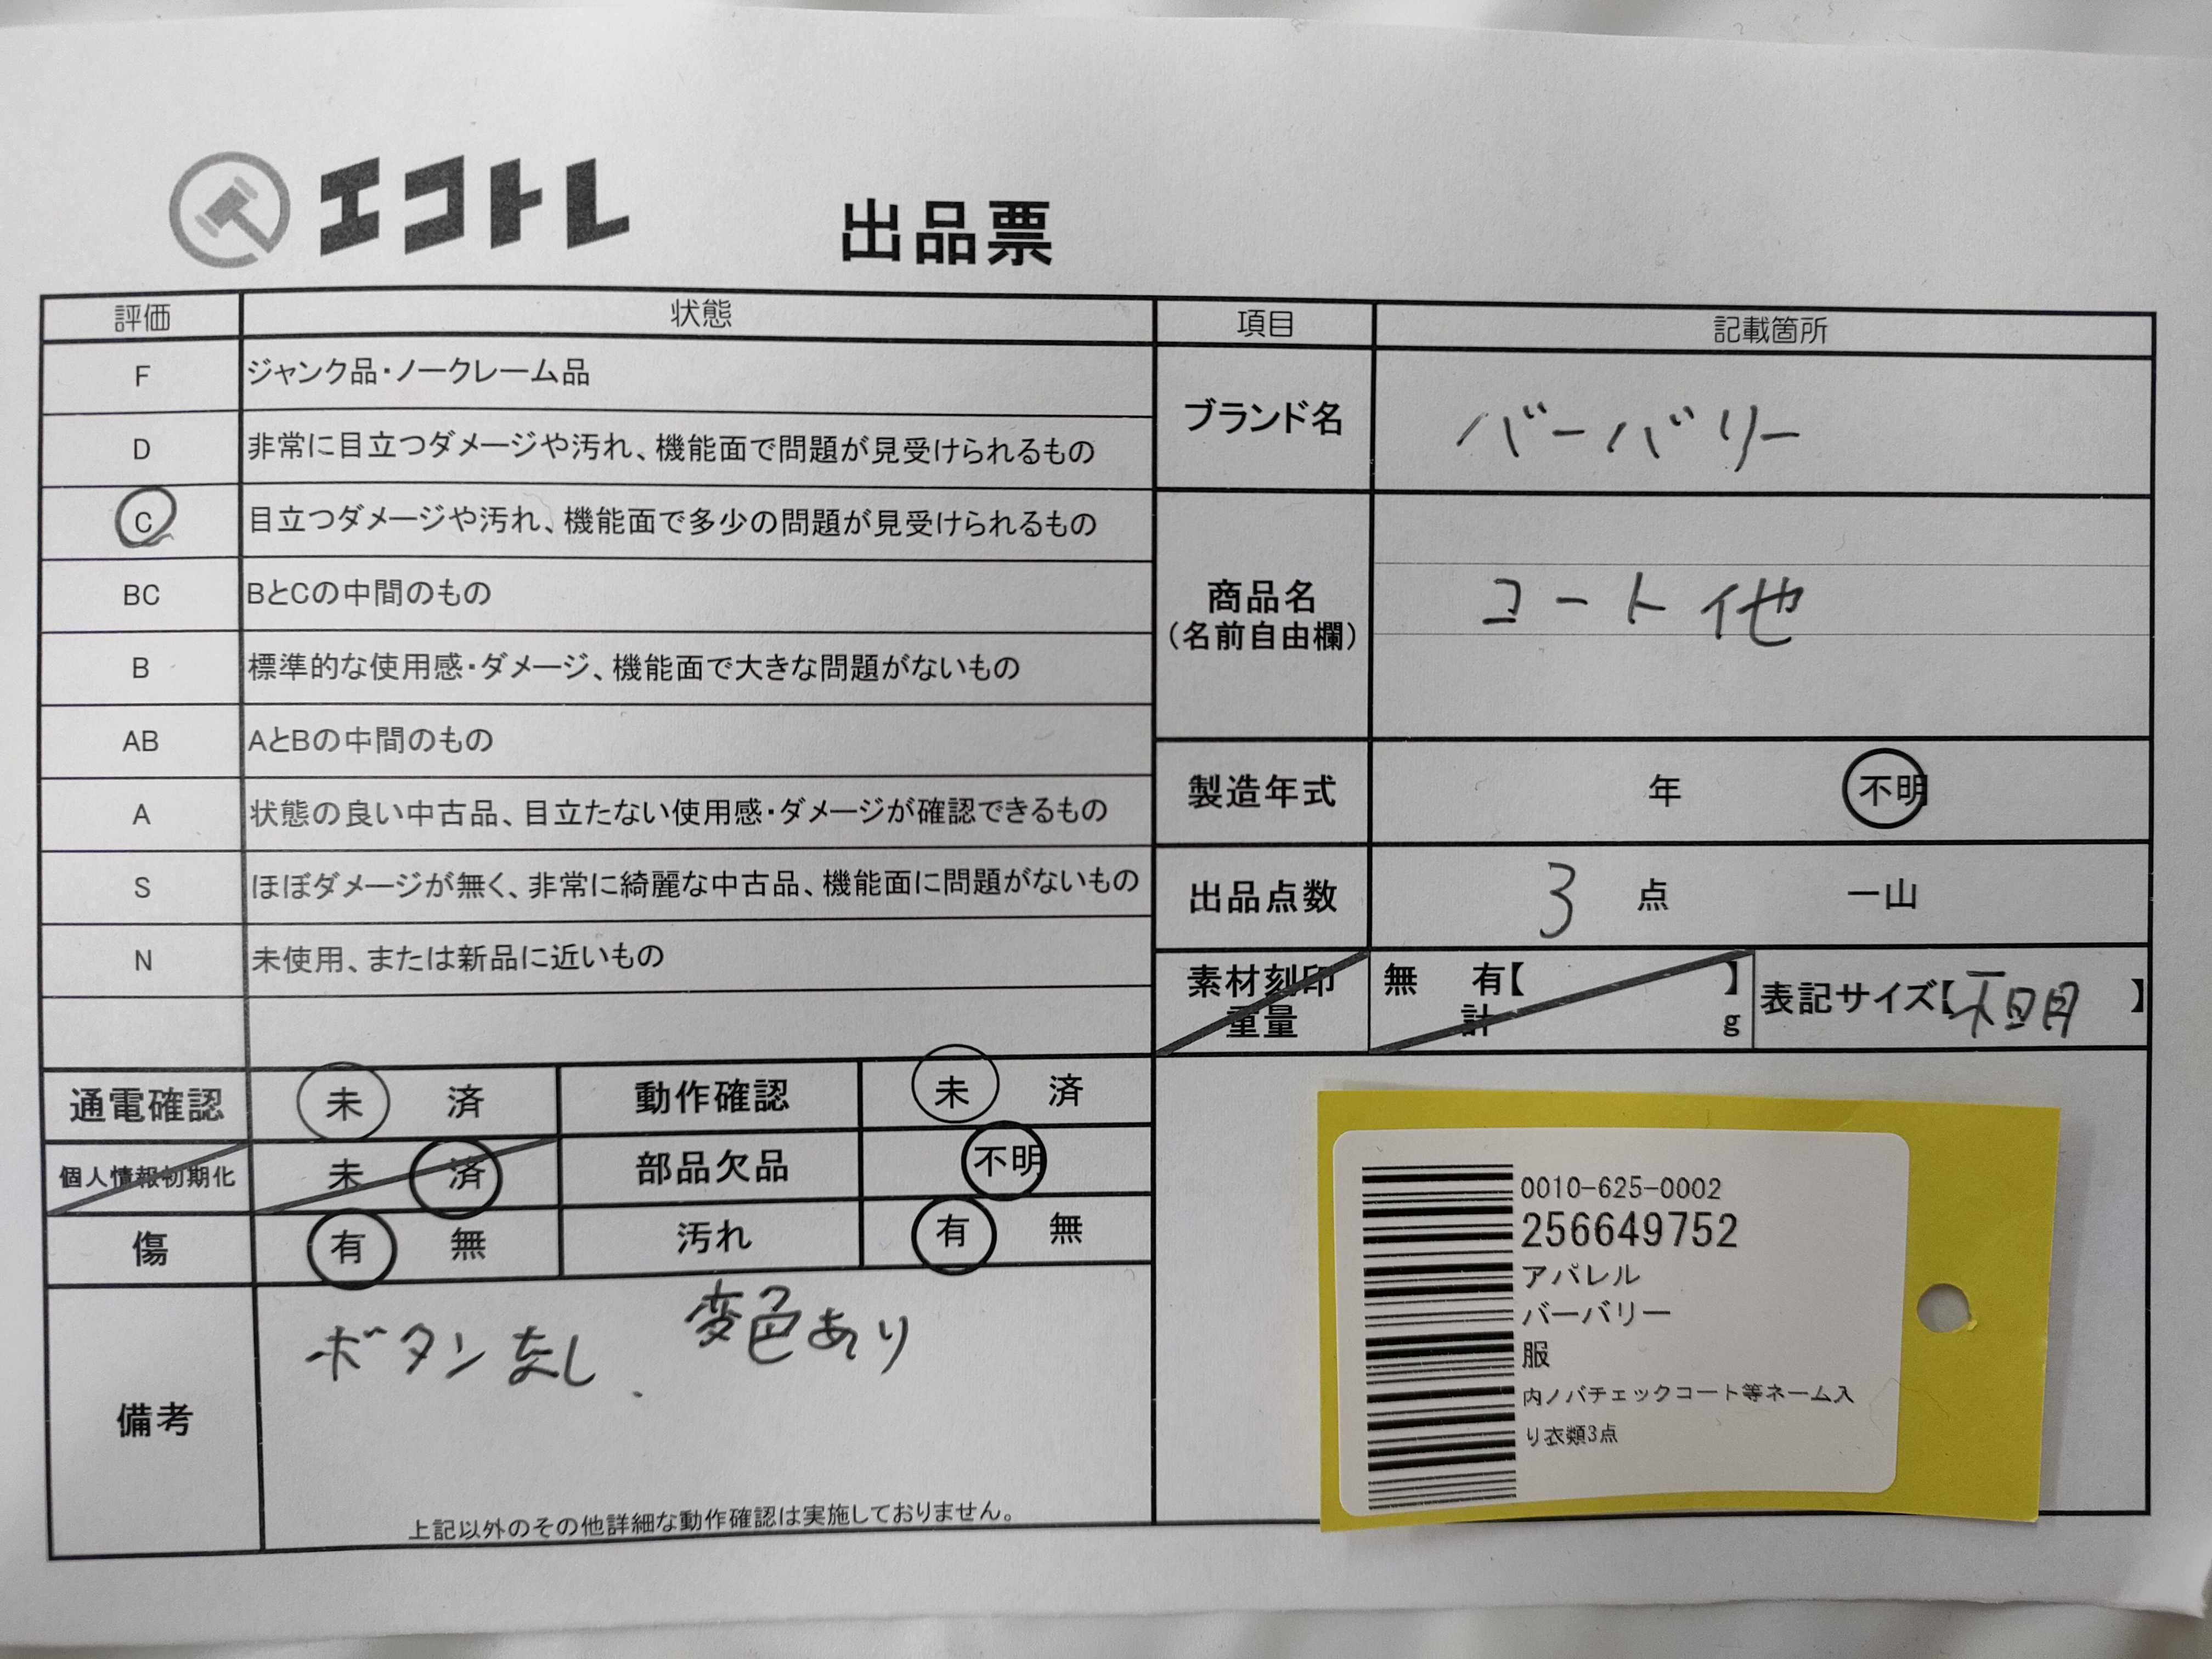 エコトレ
出品票
評価 状態
F ジャンク品・ノークレーム品
D 非常に目立つダメージや汚れ、機能面で問題が見受けられるもの
C 目立つダメージや汚れ、機能面で多少の問題が見受けられるもの
BC BとCの中間のもの
B 標準的な使用感・ダメージ、機能面で大きな問題がないもの
AB AとBの中間のもの
A 状態の良い中古品、目立たない使用感・ダメージが確認できるもの
S ほぼダメージが無く、非常に綺麗な中古品、機能面に問題がないもの
N 未使用、または新品に近いもの
通電確認 未 済 動作確認 未 済
個人情報初期化 未 済 部品欠品 不明
傷 有 無 汚れ 有 無
備考 ボタンなし、変色あり
上記以外のその他詳細な動作確認は実施しておりません。
項目 記載箇所
ブランド名 バーバリー
商品名 コート他
(名前自由欄)
製造年式 年 不明
出品点数 3 点 一山
素材刻印 無 有【 】 表記サイズ【不明】
重量 計 g
0010-625-0002
256649752
アパレル
バーバリー
服
内ノバチェックコート等ネーム入
り衣類3点